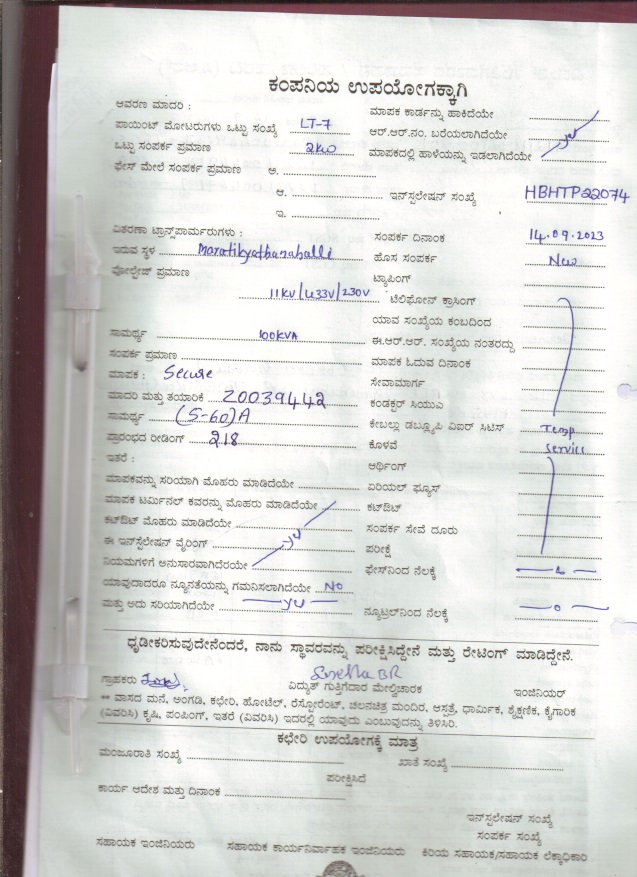 ಕಂಪನಿಯ ಉಪಯೋಗಕ್ಕಾಗಿ
ಆವರಣ ಮಾದರಿ :
ಮಾಪಕ ಕಾರ್ಡನ್ನು ಹಾಕಿದೆಯೇ
ಪಾಯಿಂಟ್ ಮೋಟರುಗಳು ಒಟ್ಟು ಸಂಖ್ಯೆ LT-7
ಆರ್.ಆರ್.ನಂ. ಬರೆಯಲಾಗಿದೆಯೇ
ಒಟ್ಟು ಸಂಪರ್ಕ ಪ್ರಮಾಣ 2KW
ಮಾಪಕದಲ್ಲಿ ಹಾಳೆಯನ್ನು ಇಡಲಾಗಿದೆಯೇ
ಫೇಸ್ ಮೇಲೆ ಸಂಪರ್ಕ ಪ್ರಮಾಣ ಅ.
ಆ. ಇನ್‌ಸ್ಟಲೇಷನ್ ಸಂಖ್ಯೆ HBHTP22074
ಇ.
ವಿತರಣಾ ಟ್ರಾನ್ಸ್‌ಪಾರ್ಮರುಗಳು :
ಸಂಪರ್ಕ ದಿನಾಂಕ 14.09.2023
ಇರುವ ಸ್ಥಳ Maratikyathanahalli
ಹೊಸ ಸಂಪರ್ಕ New
ವೋಲ್ಟೇಜ್ ಪ್ರಮಾಣ
ಟ್ಯಾಪಿಂಗ್
11KV/433V/230V ಟೆಲಿಫೋನ್ ಕ್ರಾಸಿಂಗ್
ಯಾವ ಸಂಖ್ಯೆಯ ಕಂಬದಿಂದ
ಸಾಮರ್ಥ್ಯ 100KVA
ಈ.ಆರ್.ಆರ್. ಸಂಖ್ಯೆಯ ನಂತರದ್ದು
ಸಂಪರ್ಕ ಪ್ರಮಾಣ
ಮಾಪಕ ಓದುವ ದಿನಾಂಕ
ಮಾಪಕ : Secure
ಸೇವಾಮಾರ್ಗ
ಮಾದರಿ ಮತ್ತು ತಯಾರಿಕೆ 20039442
ಕಂಡಕ್ಟರ್ ಸಿಯುಎ
ಸಾಮರ್ಥ್ಯ (5-60)A
ಕೇಬಲ್ಲು ಡಬ್ಲ್ಯೂಪಿ ವಿಐರ್ ಸಿಟಿಸ್ Temp
ಪ್ರಾರಂಭದ ರೀಡಿಂಗ್ 218
ಕೊಳವೆ Service
ಇತರೆ :
ಆರ್ಥಿಂಗ್
ಮಾಪಕವನ್ನು ಸರಿಯಾಗಿ ಮೊಹರು ಮಾಡಿದೆಯೇ
ಏರಿಯಲ್ ಫ್ಯೂಸ್
ಮಾಪಕ ಟರ್ಮಿನಲ್ ಕವರನ್ನು ಮೊಹರು ಮಾಡಿದೆಯೇ
ಕಟ್‌ಔಟ್
ಕಟ್‌ಔಟ್ ಮೊಹರು ಮಾಡಿದೆಯೇ
ಸಂಪರ್ಕ ಸೇವೆ ದೂರು
ಈ ಇನ್‌ಸ್ಟಲೇಷನ್ ವೈರಿಂಗ್
ಪರೀಕ್ಷೆ
ನಿಯಮಗಳಿಗೆ ಅನುಸಾರವಾಗಿದೆಯೇ
ಫೇಸ್‌ನಿಂದ ನೆಲಕ್ಕೆ
ಯಾವುದಾದರೂ ನ್ಯೂನತೆಯನ್ನು ಗಮನಿಸಲಾಗಿದೆಯೇ NO
ಮತ್ತು ಅದು ಸರಿಯಾಗಿದೆಯೇ
ನ್ಯೂಟ್ರಲ್‌ನಿಂದ ನೆಲಕ್ಕೆ 0
ಧೃಡೀಕರಿಸುವುದೇನೆಂದರೆ, ನಾನು ಸ್ಥಾವರವನ್ನು ಪರೀಕ್ಷಿಸಿದ್ದೇನೆ ಮತ್ತು ರೇಟಿಂಗ್ ಮಾಡಿದ್ದೇನೆ.
ಗ್ರಾಹಕರು
ವಿದ್ಯುತ್ ಗುತ್ತಿಗೆದಾರ ಮೇಲ್ವಿಚಾರಕ
ಇಂಜಿನಿಯರ್
** ವಾಸದ ಮನೆ, ಅಂಗಡಿ, ಕಛೇರಿ, ಹೋಟೆಲ್, ರೆಸ್ಟೋರೆಂಟ್, ಚಲನಚಿತ್ರ ಮಂದಿರ, ಆಸ್ಪತ್ರೆ, ಧಾರ್ಮಿಕ, ಶೈಕ್ಷಣಿಕ, ಕೈಗಾರಿಕ
(ವಿವರಿಸಿ) ಕೃಷಿ, ಪಂಪಿಂಗ್, ಇತರೆ (ವಿವರಿಸಿ) ಇದರಲ್ಲಿ ಯಾವುದು ಎಂಬುವುದನ್ನು ತಿಳಿಸಿರಿ.
ಕಛೇರಿ ಉಪಯೋಗಕ್ಕೆ ಮಾತ್ರ
ಮಂಜೂರಾತಿ ಸಂಖ್ಯೆ
ಖಾತೆ ಸಂಖ್ಯೆ
ಪರೀಕ್ಷಿಸಿದೆ
ಕಾರ್ಯ ಆದೇಶ ಮತ್ತು ದಿನಾಂಕ
ಇನ್‌ಸ್ಟಲೇಷನ್ ಸಂಖ್ಯೆ
ಸಂಪರ್ಕ ಸಂಖ್ಯೆ
ಸಹಾಯಕ ಇಂಜಿನಿಯರು ಸಹಾಯಕ ಕಾರ್ಯನಿರ್ವಾಹಕ ಇಂಜಿನಿಯರು ಕಿರಿಯ ಸಹಾಯಕ/ಸಹಾಯಕ ಲೆಕ್ಕಾಧಿಕಾರಿ